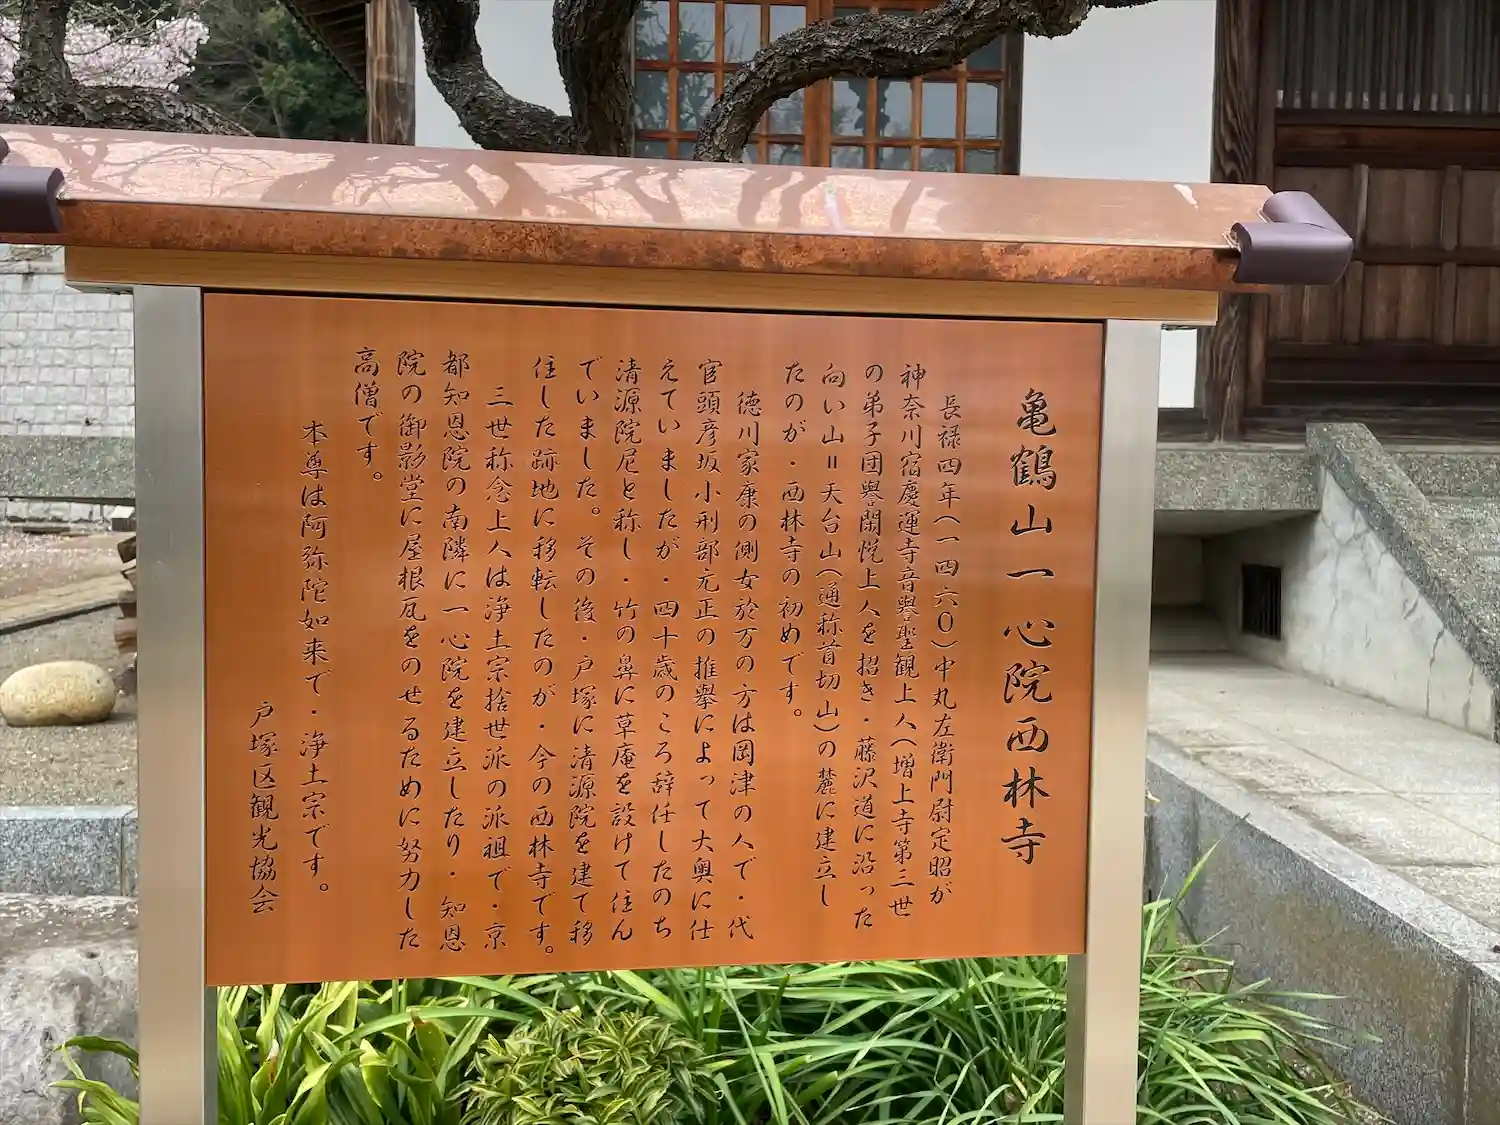 亀鶴山一心院西林寺
長禄四年(一四六〇)中丸左衛門尉定昭が
神奈川宿慶運寺音譽聖観上人(増上寺第三世
の弟子団譽閑悦上人を招き・藤沢道に沿った
向い山＝天台山(通称首切山)の麓に建立し
たのが・西林寺の初めです。
徳川家康の側女於万の方は岡津の人で・代
官頭彦坂小刑部元正の推挙によって大奥に仕
えていましたが・四十歳のころ辞任したのち
清源院尼と称し・竹の鼻に草庵を設けて住ん
でいました。その後・戸塚に清源院を建て移
住した跡地に移転したのが・今の西林寺です。
三世称念上人は浄土宗捨世派の派祖で・京
都知恩院の南隣に一心院を建立したり・知恩
院の御影堂に屋根瓦をのせるために努力した
高僧です。
本尊は阿弥陀如来で・浄土宗です。
戸塚区観光協会